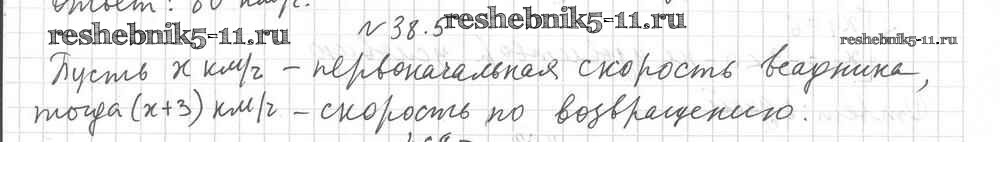 Ответ: 80 км/ч.
№ 38.5
reshebnik5-11.ru
reshebnik5-11.ru
reshebnik5-11.ru
Пусть x км/ч – первоначальная скорость всадника,
тогда (x+3) км/ч – скорость по возвращению.